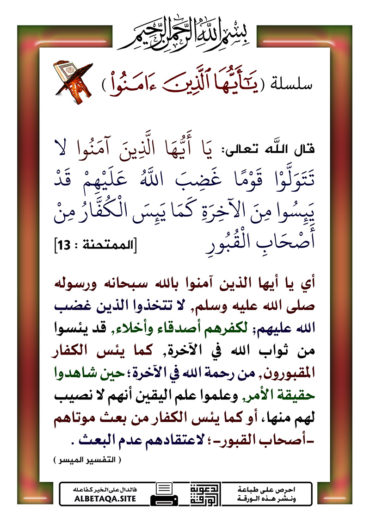 بسم الله الرحمن الرحيم
سلسلة ( يَـٰٓأَيُّهَا ٱلَّذِينَ ءَامَنُوا۟ )
قال الله تعالى: يَا أَيُّهَا الَّذِينَ آمَنُوا لَا
تَتَوَلَّوْا قَوْمًا غَضِبَ اللَّهُ عَلَيْهِمْ قَدْ
يَئِسُوا مِنَ الْآخِرَةِ كَمَا يَئِسَ الْكُفَّارُ مِنْ
أَصْحَابِ الْقُبُورِ [الممتحنة : 13]
أي يا أيها الذين آمنوا بالله سبحانه ورسوله
صلى الله عليه وسلم, لا تتخذوا الذين غضب
الله عليهم; لكفرهم أصدقاء وأخلاء, قد يئسوا
من ثواب الله في الآخرة, كما يئس الكفار
المقبورون, من رحمة الله في الآخرة؛ حين شاهدوا
حقيقة الأمر, وعلموا علم اليقين أنهم لا نصيب
لهم منها، أو كما يئس الكفار من بعث موتاهم
-أصحاب القبور-؛ لاعتقادهم عدم البعث .
( التفسير الميسر )
احرص على طباعة
ونشر هذه الورقة
الورقة الدعوية
فالدال على الخير كفاعله
ALBETAQA.SITE